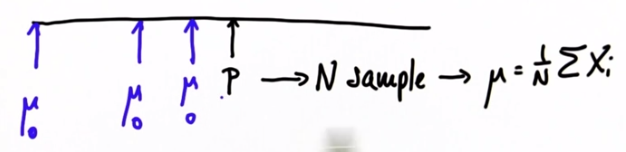 μ₀ μ₀ μ₀ P → N sample → μ = 1/N Σ Xi